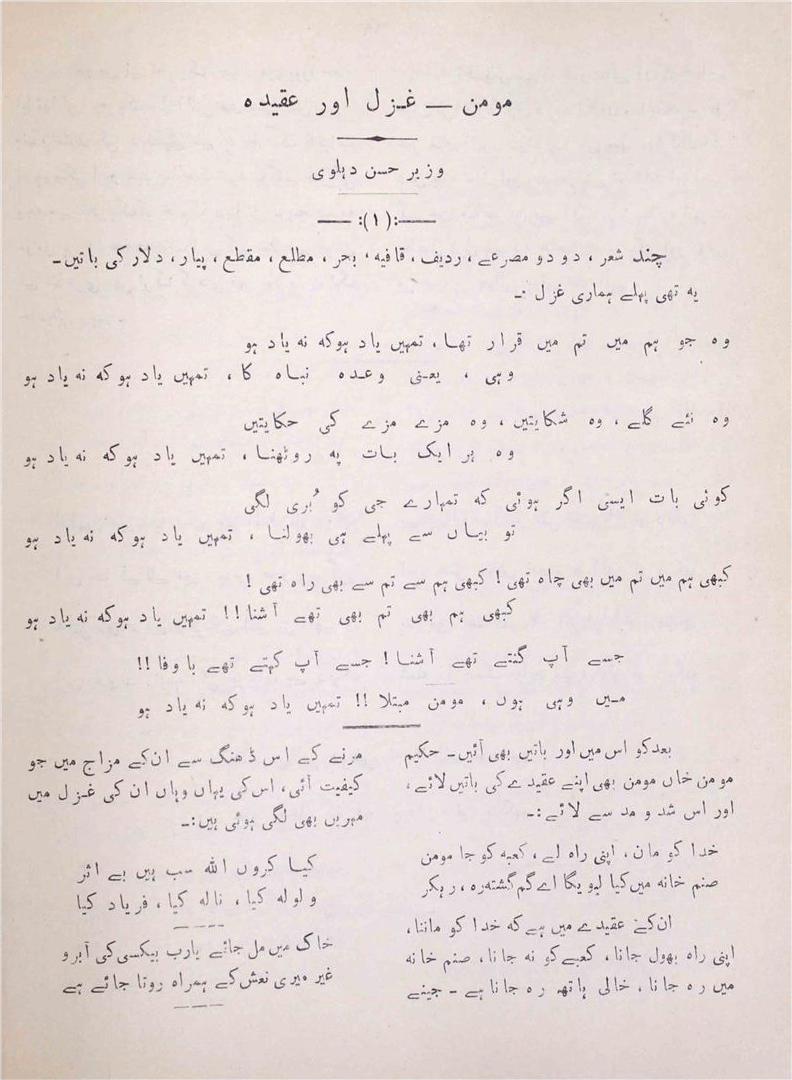 مومن — غزل اور عقیدہ
وزیر حسن دہلوی
—:(۱):—
چند شعر ، دو دو مصرعے ، ردیف ، قافیہ ، بحر ، مطلع ، مقطع ، پیار ، دلار کی باتیں ۔
یہ تھی پہلے ہماری غزل :۔
وہ جو ہم میں تم میں قرار تھا ، تمہیں یاد ہو کہ نہ یاد ہو
وہی ، یعنی وعدہ نباہ کا ، تمہیں یاد ہو کہ نہ یاد ہو
وہ نئے گلے ، وہ شکایتیں ، وہ مزے مزے کی حکایتیں
وہ ہر ایک بات پہ روٹھنا ، تمہیں یاد ہو کہ نہ یاد ہو
کوئی بات ایسی اگر ہوئی کہ تمہارے جی کو بُری لگی
تو بیاں سے پہلے ہی بھولنا ، تمہیں یاد ہو کہ نہ یاد ہو
کبھی ہم میں تم میں بھی چاہ تھی ! کبھی ہم سے تم سے بھی راہ تھی !
کبھی ہم بھی تم بھی تھے آشنا !! تمہیں یاد ہو کہ نہ یاد ہو
جسے آپ گنتے تھے آشنا ! جسے آپ کہتے تھے با وفا !!
میں وہی ہوں ، مومن مبتلا !! تمہیں یاد ہو کہ نہ یاد ہو
بعد کو اس میں اور باتیں بھی آئیں ۔ حکیم
مومن خاں مومن بھی اپنے عقیدے کی باتیں لائے ،
اور اس شد و مد سے لائے :۔
خدا کو مان ، اپنی راہ لے ، کعبہ کو جا مومن
صنم خانہ میں کیا لیویگا اے گم گشتہ رہ ، رہکر
ان کے عقیدے میں ہے کہ خدا کو ماننا ،
اپنی راہ بھول جانا ، کعبے کو نہ جانا ، صنم خانہ
میں رہ جانا ، خالی ہاتھ رہ جانا ہے ۔ جینے
مرنے کے اس ڈھنگ سے ان کے مزاج میں جو
کیفیت آئی ، اس کی یہاں وہاں ان کی غزل میں
مہریں بھی لگی ہوئی ہیں :۔
کیا کروں اللہ سب ہیں بے اثر
ولولہ کیا ، نالہ کیا ، فریاد کیا
خاک میں مل جائے یارب بیکسی کی آبرو
غیر میری نعش کے ہمراہ روتا جائے ہے